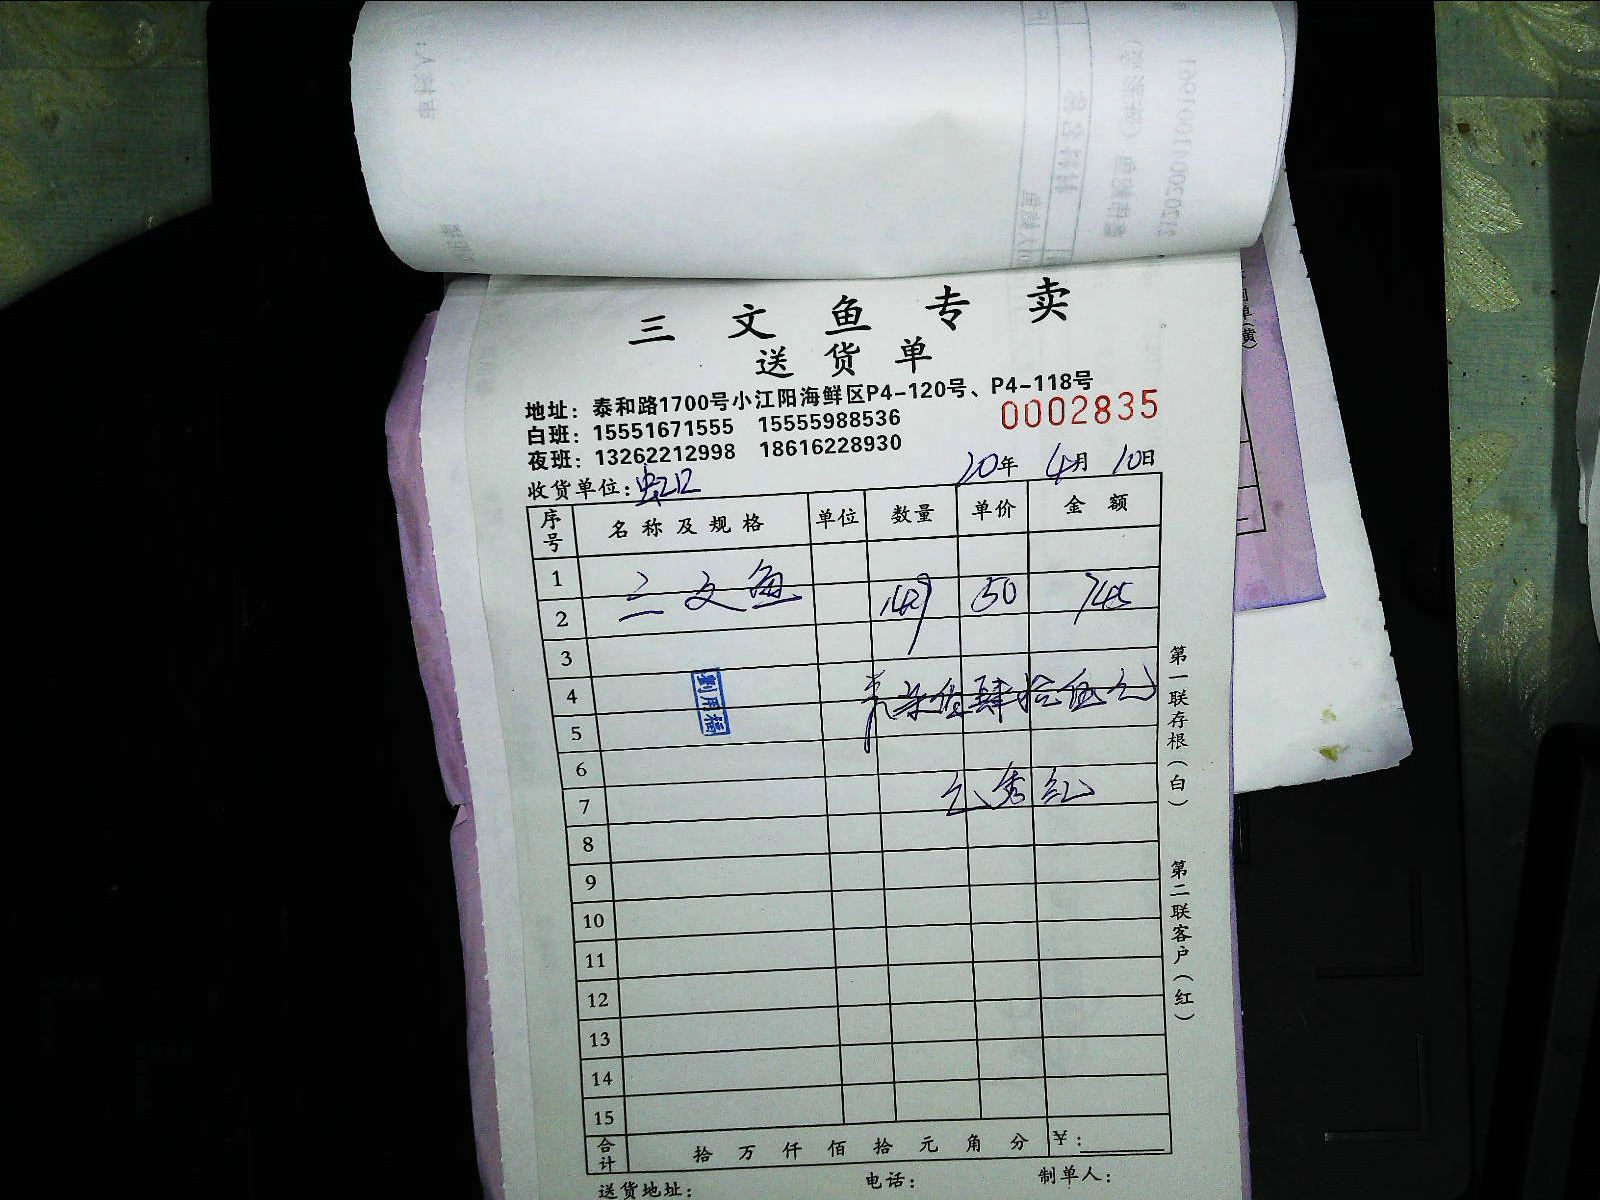 三文鱼专卖
送货单
地址：泰和路1700号小江阳海鲜区P4-120号、P4-118号
白班：15551671555 15555988536
0002835
夜班：13262212998 18616228930
20年 4月 10日
收货单位：虹口
序号 名称及规格 单位 数量 单价 金额
1
三文鱼 50 745
2
3
4
柒佰肆拾伍元
5
6
7
8
9
10
11
12
13
14
15
合计 拾万仟佰拾元角分 ￥：
送货地址： 电话： 制单人：
第一联存根（白） 第二联客户（红）